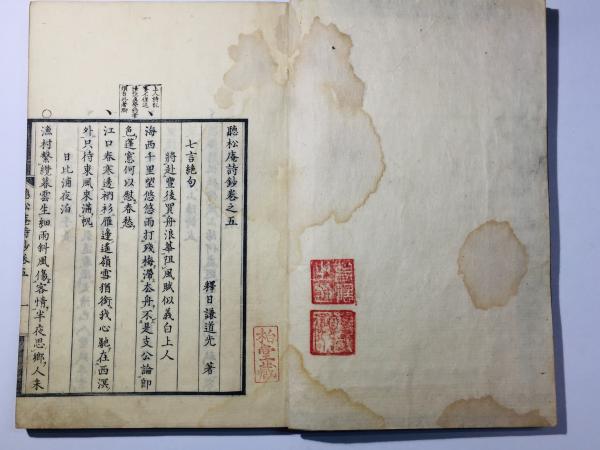 聽松庵詩鈔卷之五
釋日謙道光 著
七言絕句
將赴豐後買舟浪華阻風賦似義白上人
海西千里望悠悠雨打殘梅滯客舟不是支公論即
色蓬窓何以慰春愁
江口春寒透衲衫雁邊遙嶺雲猶銜我心馳在西溟
外只待東風來滿帆
日比浦夜泊
漁村繫纜暮雲生細雨斜風傷客情半夜思鄉人未
聽松庵詩鈔卷五 一
柏堂藏